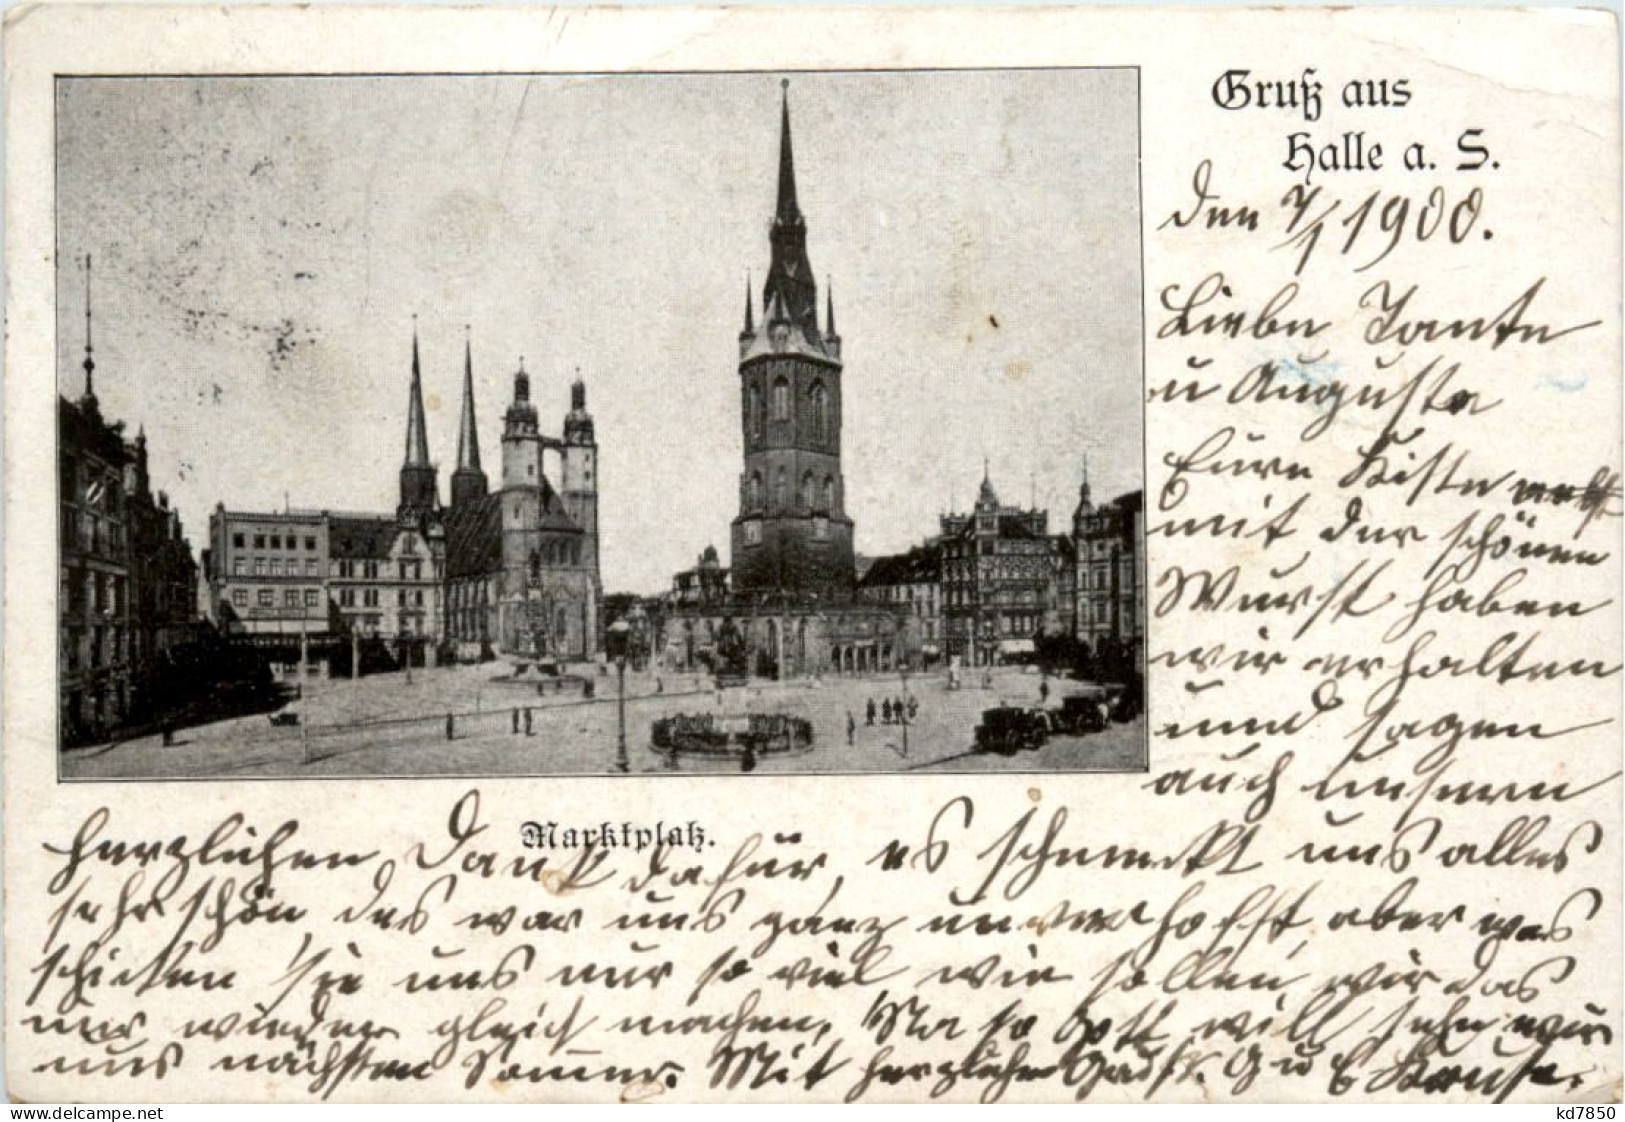 Gruß aus
Halle a. S.
den 7/1 1900.
Liebe Tante
u Auguste
Eure Kiste
mit der schönen
Wurst haben
wir erhalten
und sagen
auch unsern
Marktplatz.
herzlichen Dank dafür, es schmeckt uns alles
sehr schön, das war uns ganz unverhofft, aber was
schicken Sie uns nur so viel, wie sollen wir das
nur wieder gleich machen, Na so Gott will sehn wir
uns nächsten Sommer. Mit herzlichen Gruß. G u E Krause.
www.delcampe.net
kd7850